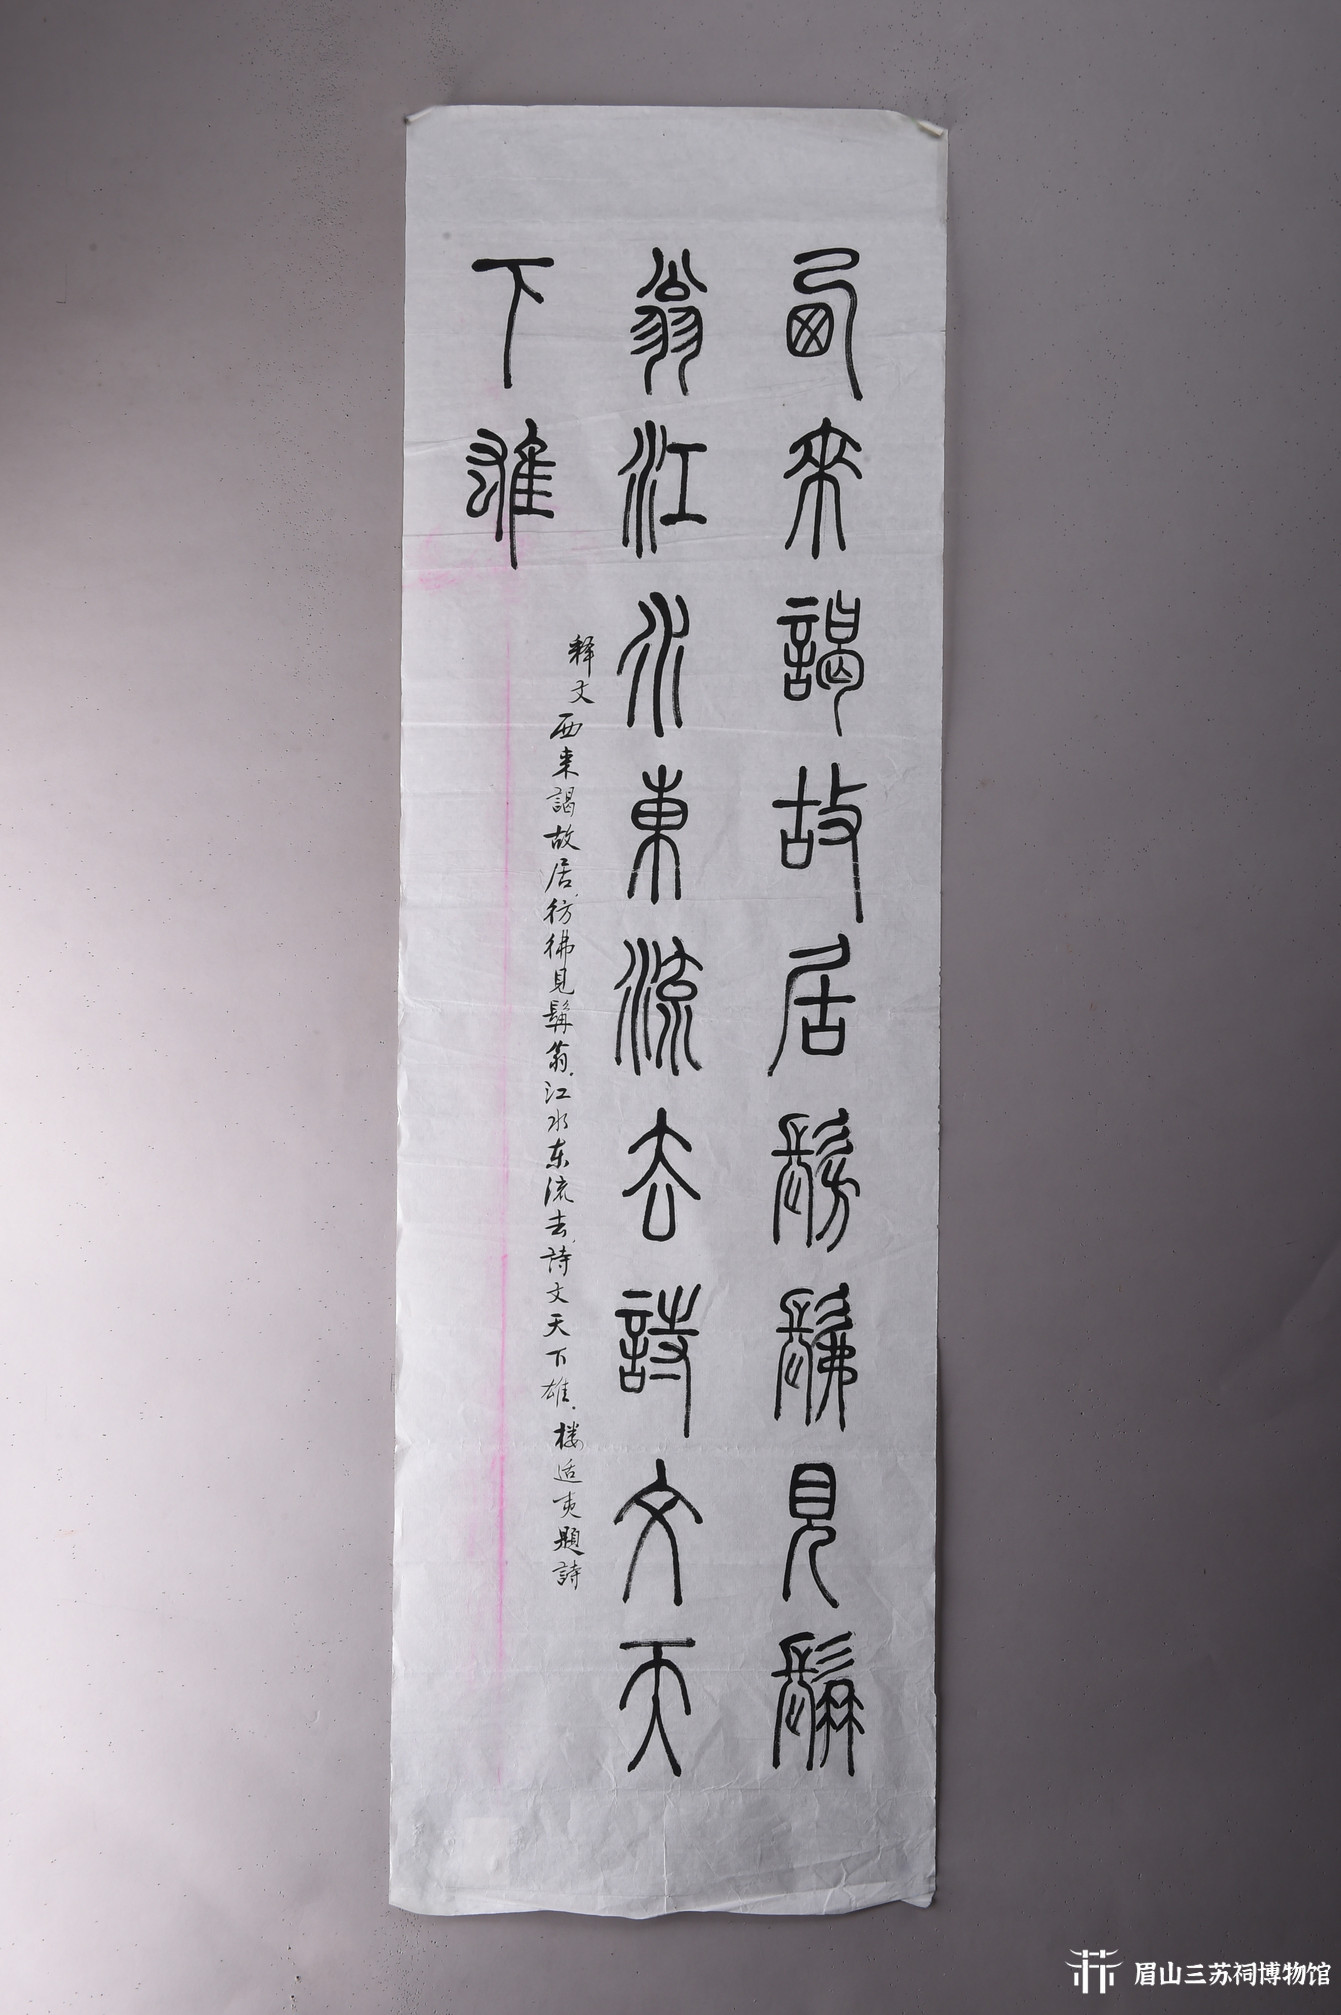 西來謁故居髣髴見髯
翁江水東流去詩文天
下雄
释文
西来謁故居.彷彿見髯翁.江水东流去.詩文天下雄.
楼适夷题詩
眉山三苏祠博物馆